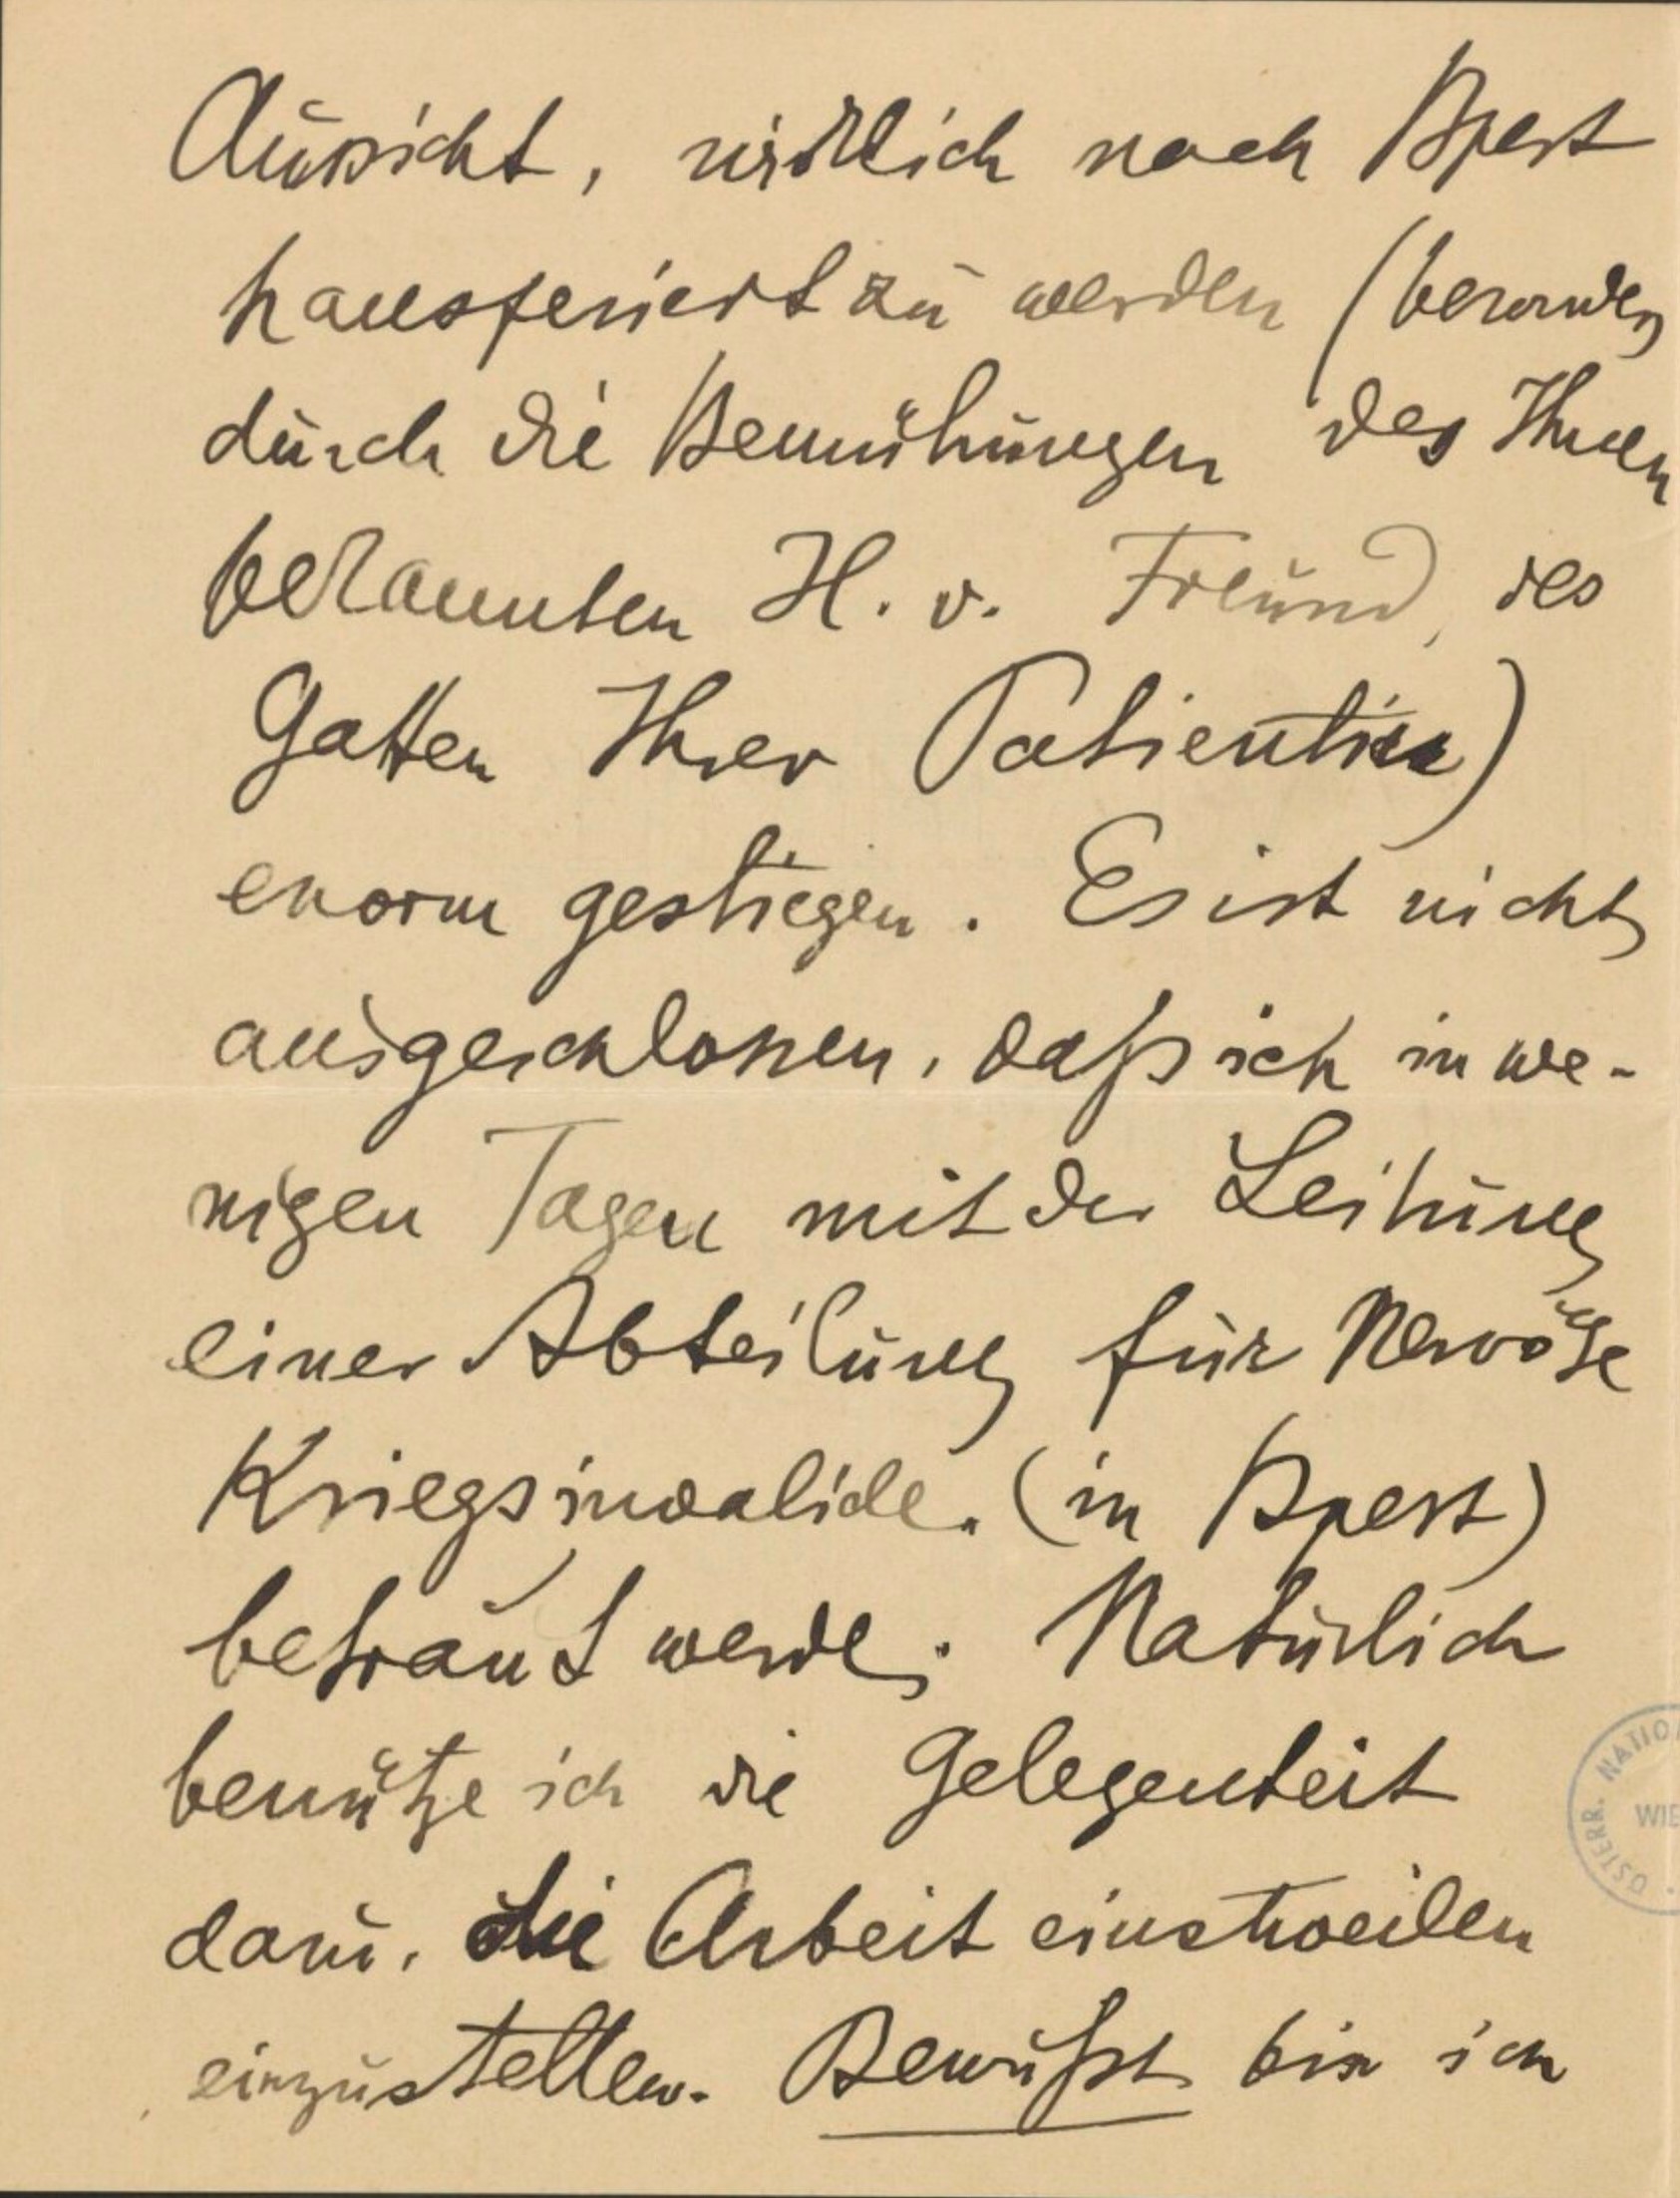 Aussicht, wirklich nach Bpest
transferiert zu werden (besonders
durch die Bemühungen des Ihnen
bekannten H. v. Freund, des
Gatten Ihrer Patientin)
enorm gestiegen. Es ist nicht
ausgeschlossen, daß ich in we-
nigen Tagen mit der Leitung
einer Abteilung für Nervöse
Kriegsinvalide. (in Bpest)
betraut werde; Natürlich
benütze ich die Gelegenheit
dazu, die Arbeit einstweilen
einzustellen. Bewußt bin ich
ÖSTERR. NATIO
WIE